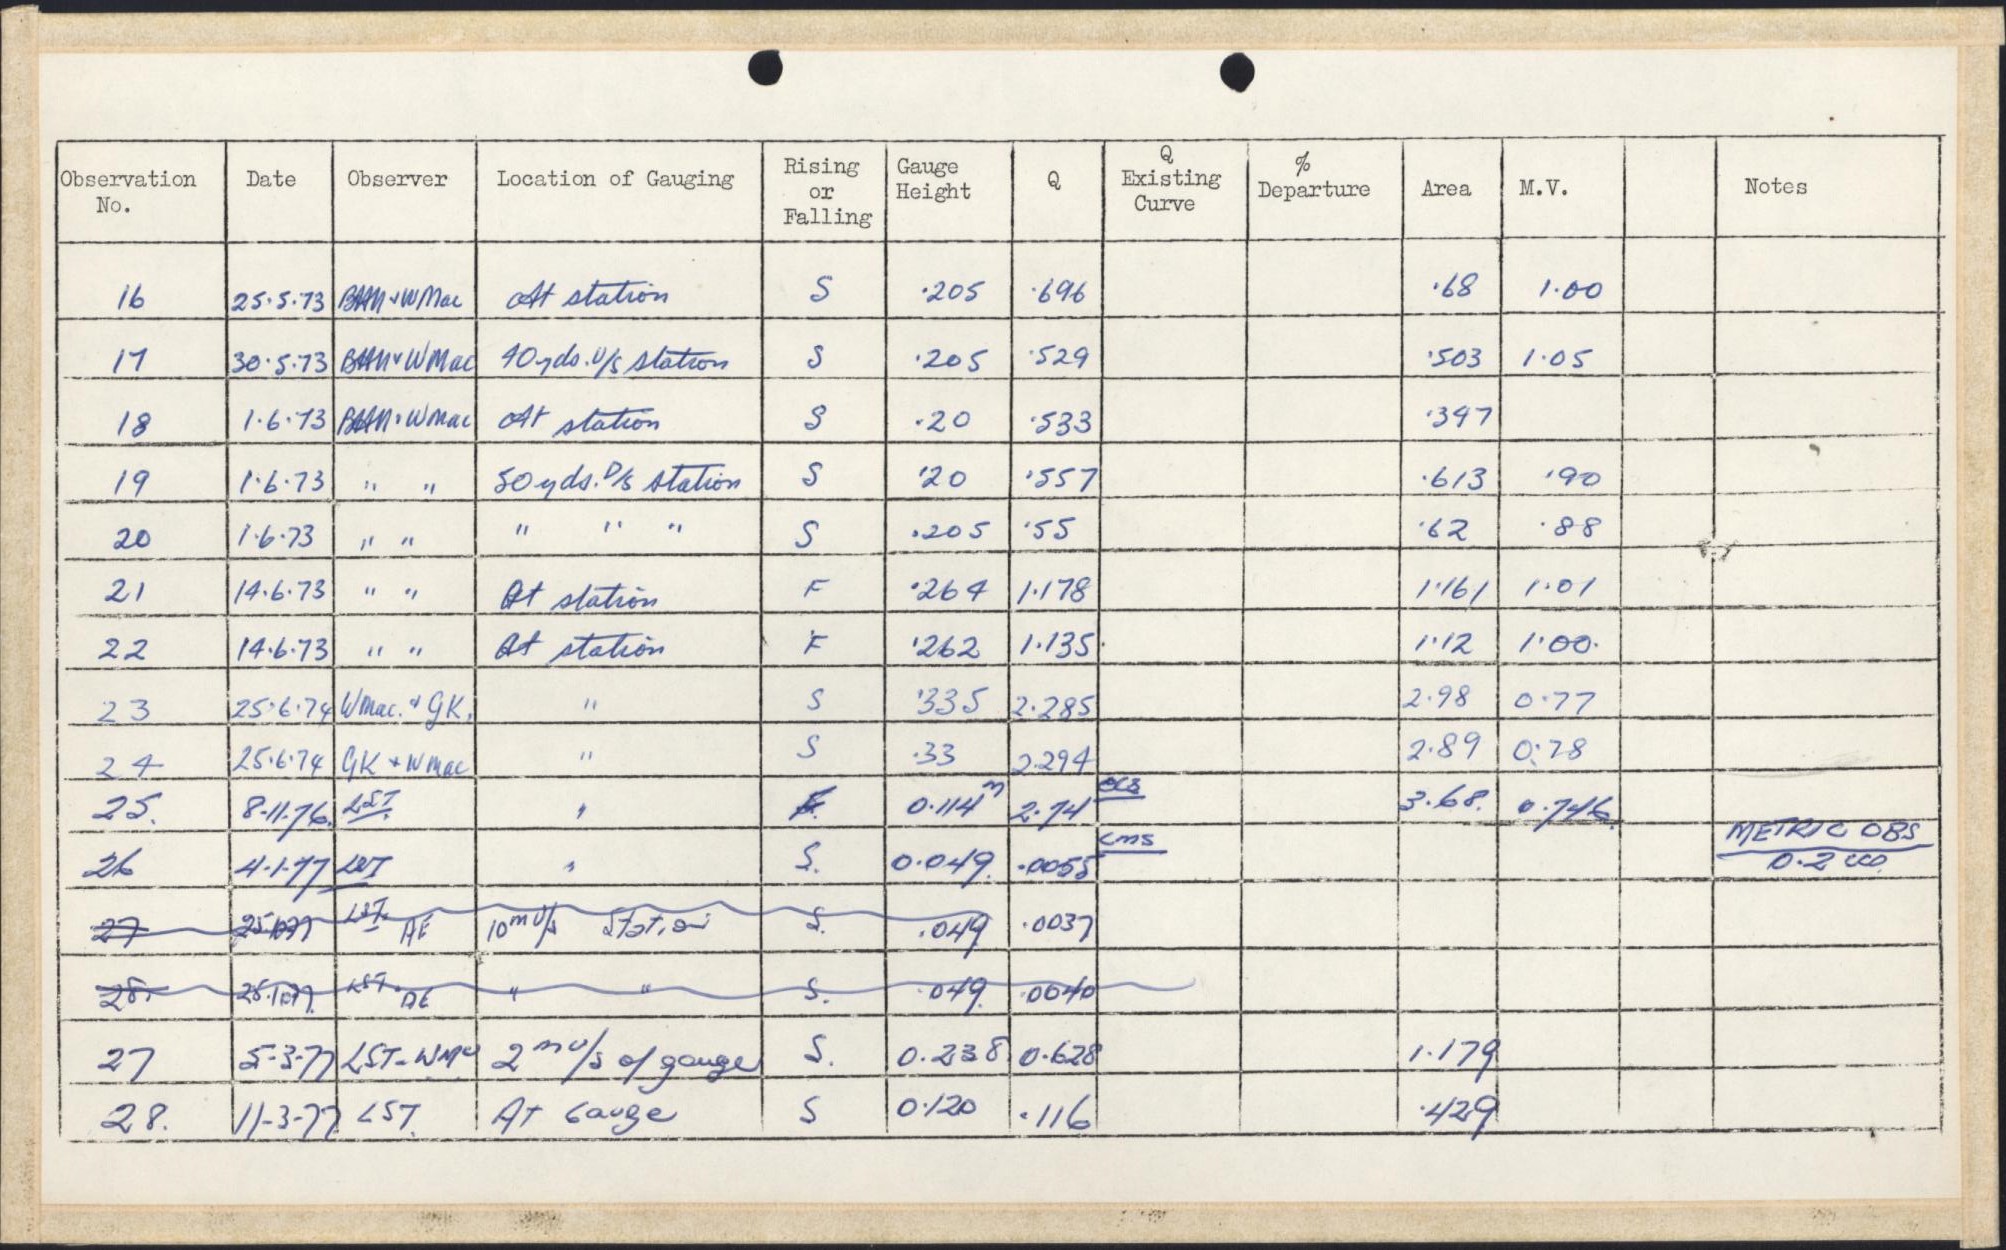 Observation No. Date Observer Location of Gauging Rising or Falling Gauge Height Q Q Existing Curve % Departure Area M.V. Notes
16 25.5.73 BAM + WMac At station S .205 .696 .68 1.00
17 30.5.73 BAM + WMac 40yds. U/S station S .205 .529 .503 1.05
18 1.6.73 BAM + WMac At station S .20 .533 .397
19 1.6.73 " " 50yds. D/S station S .20 .557 .613 .90
20 1.6.73 " " " " " S .205 .55 .62 .88
21 14.6.73 " " At station F .264 1.178 1.161 1.01
22 14.6.73 " " At station F .262 1.135 1.12 1.00.
23 25.6.74 WMac. + GK. " S .335 2.285 2.98 0.77
24 25.6.74 GK + WMac " S .33 2.294 2.89 0.78
25. 8.11.76. LST. " F. 0.114 m 2.74 3.68. 0.746
26 4.1.77 LST " S. 0.049. .0055 cms METRIC OBS 0.2
27 LST. AE 10m U/S Station S. .049 .0037
28. LST. AE " " S. .049. .0040
27 5-3-77 LST-WMc 2m U/S of gauge S. 0.238 0.628 1.179
28. 11-3-77 LST. At Gauge S 0.120 .116 .429